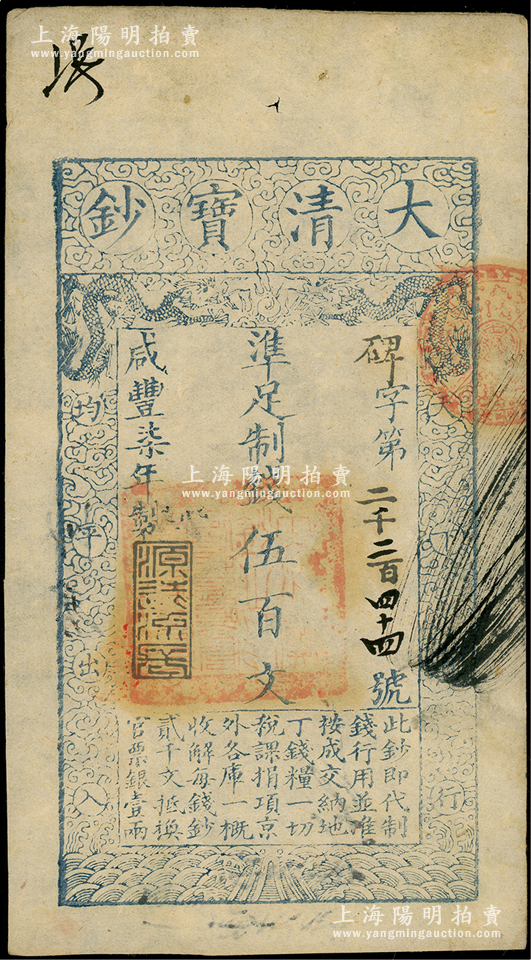 上海陽明拍賣
www.yangmingauction.com
大清寶鈔
天
行
碑字第二千二百四十四號
準足制錢伍百文
咸豐柒年製
均
平
出
入
此鈔即代制
錢行用並准
按成交納地
丁錢糧一切
稅課捐項京
外各庫一概
收解每錢鈔
貳千文抵換
官票銀壹兩
上海陽明拍賣
www.yangmingauction.com
上海陽明拍賣
www.yangmingauction.com